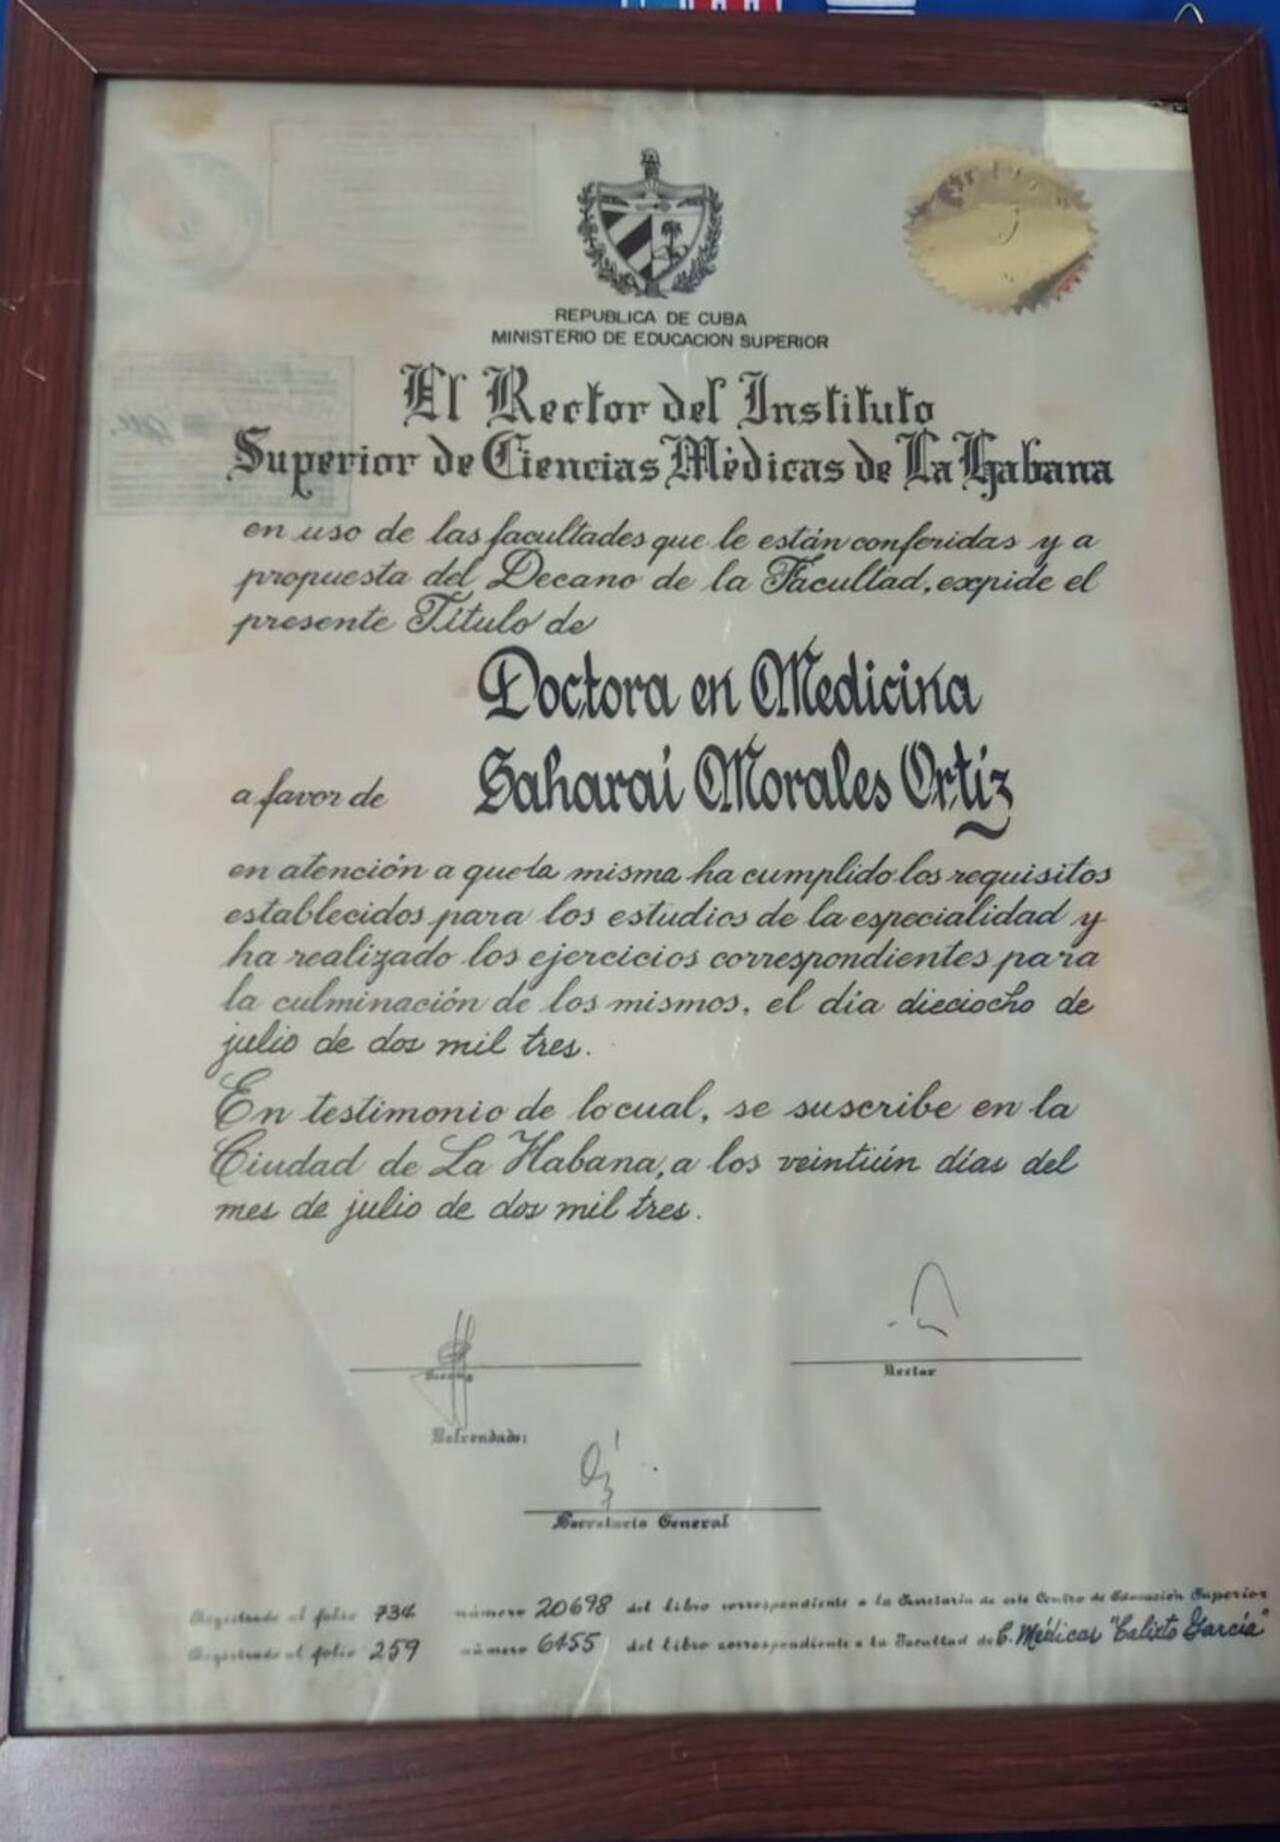 REPUBLICA DE CUBA
MINISTERIO DE EDUCACION SUPERIOR
El Rector del Instituto
Superior de Ciencias Médicas de La Habana
en uso de las facultades que le están conferidas y a
propuesta del Decano de la Facultad, expide el
presente Título de
Doctora en Medicina
a favor de Saharaí Morales Ortíz
en atención a que la misma ha cumplido los requisitos
establecidos para los estudios de la especialidad y
ha realizado los ejercicios correspondientes para
la culminación de los mismos, el día dieciocho de
julio de dos mil tres.
En testimonio de lo cual, se suscribe en la
Ciudad de La Habana, a los veintiún días del
mes de julio de dos mil tres.
Decano
Rector
Refrendado:
Secretario General
Registrado al folio 734 número 20698 del libro correspondiente a la Secretaría de este Centro de Educación Superior
Registrado al folio 259 número 6455 del libro correspondiente a la Facultad de C. Médicas "Calixto García"